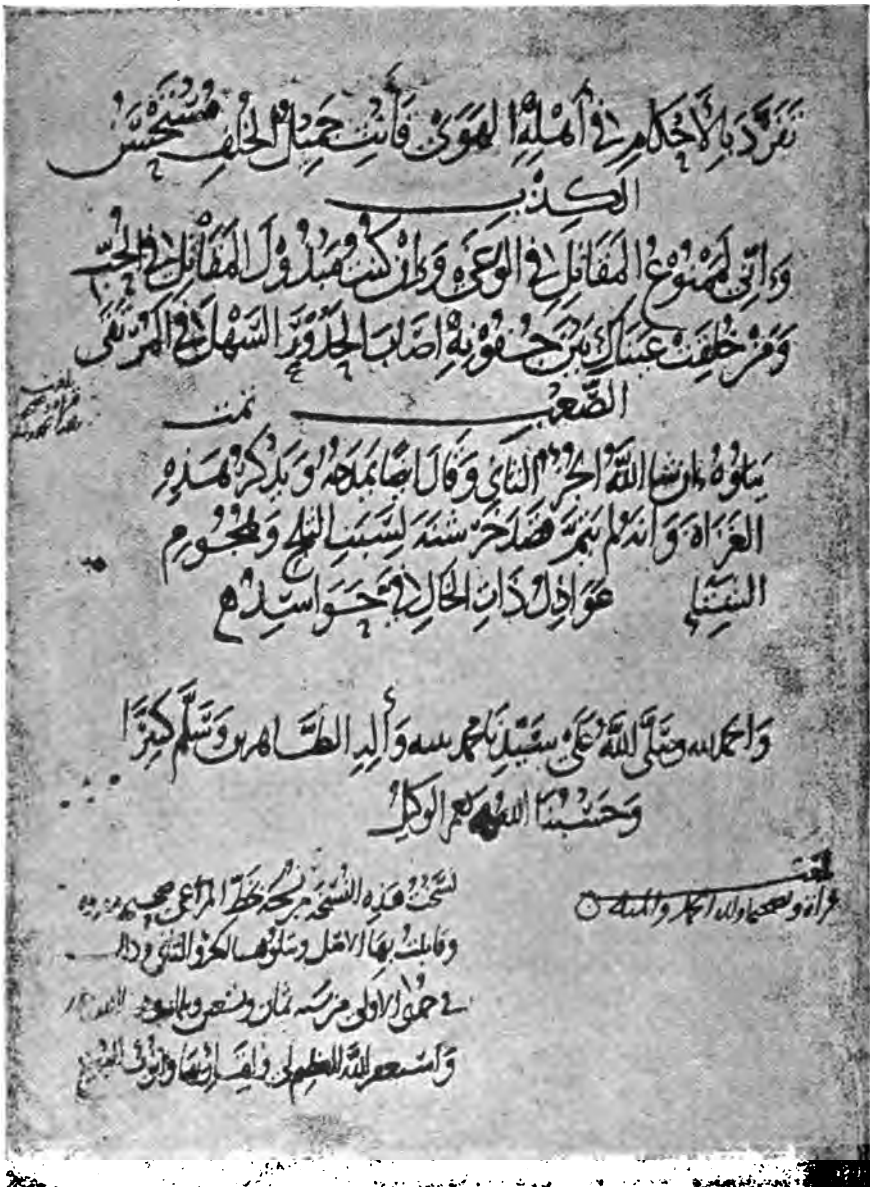 تَفَرَّدَ بِالْأَحْكَامِ فِي أَهْلِهِ الْهَوَىٰ فَأَنْتَ جَمِيلُ الْخُلْفِ مُسْتَحْسَنُ
الكِذْبِ
وَإِنِّي لَمَمْنُوعُ الْمَقَاتِلِ فِي الْوَغَىٰ وَإِنْ كُنْتُ مَبْذُولَ الْمَقَاتِلِ فِي الْحُبِّ
وَمَنْ خُلِقَتْ عَيْنَاكِ بَيْنَ جُفُونِهِ أَصَابَ الْحَدُورَ السَّهْلَ فِي الْمُرْتَقَى
الصَّعْبِ تمت
يتلوه إن شا الله الجزء الثاني وقال أيضا يمدحه ويذكر هذه
الغزاة وأنه لم يتم قصد خرشنة لسبب الثلج وهجوم
الشتا عواذل ذات الخال في حواسد
والحمد لله وصلى الله على سيدنا محمد وآله الطاهرين وسلم كثيرا
وحسبنا الله ونعم الوكيل
بلغت
قراة وتصحيحا ولله الحمد والمنة
نسخت هذه النسخة من نسخة بخط صحيح
وقابلت بها الاصل ويتلوها الجزو الثاني
في جمدى الاولى من سنة ثمان وتسعين
واستغفر الله العظيم لي